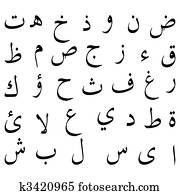 ض ن و ذ خ ת
ق ء ز ج ص م ظ
ر غ ف ث ح ؤ ك
ة ط د ي ع لا ئ
ا ى س ل ب ش
k3420965 fotosearch ©